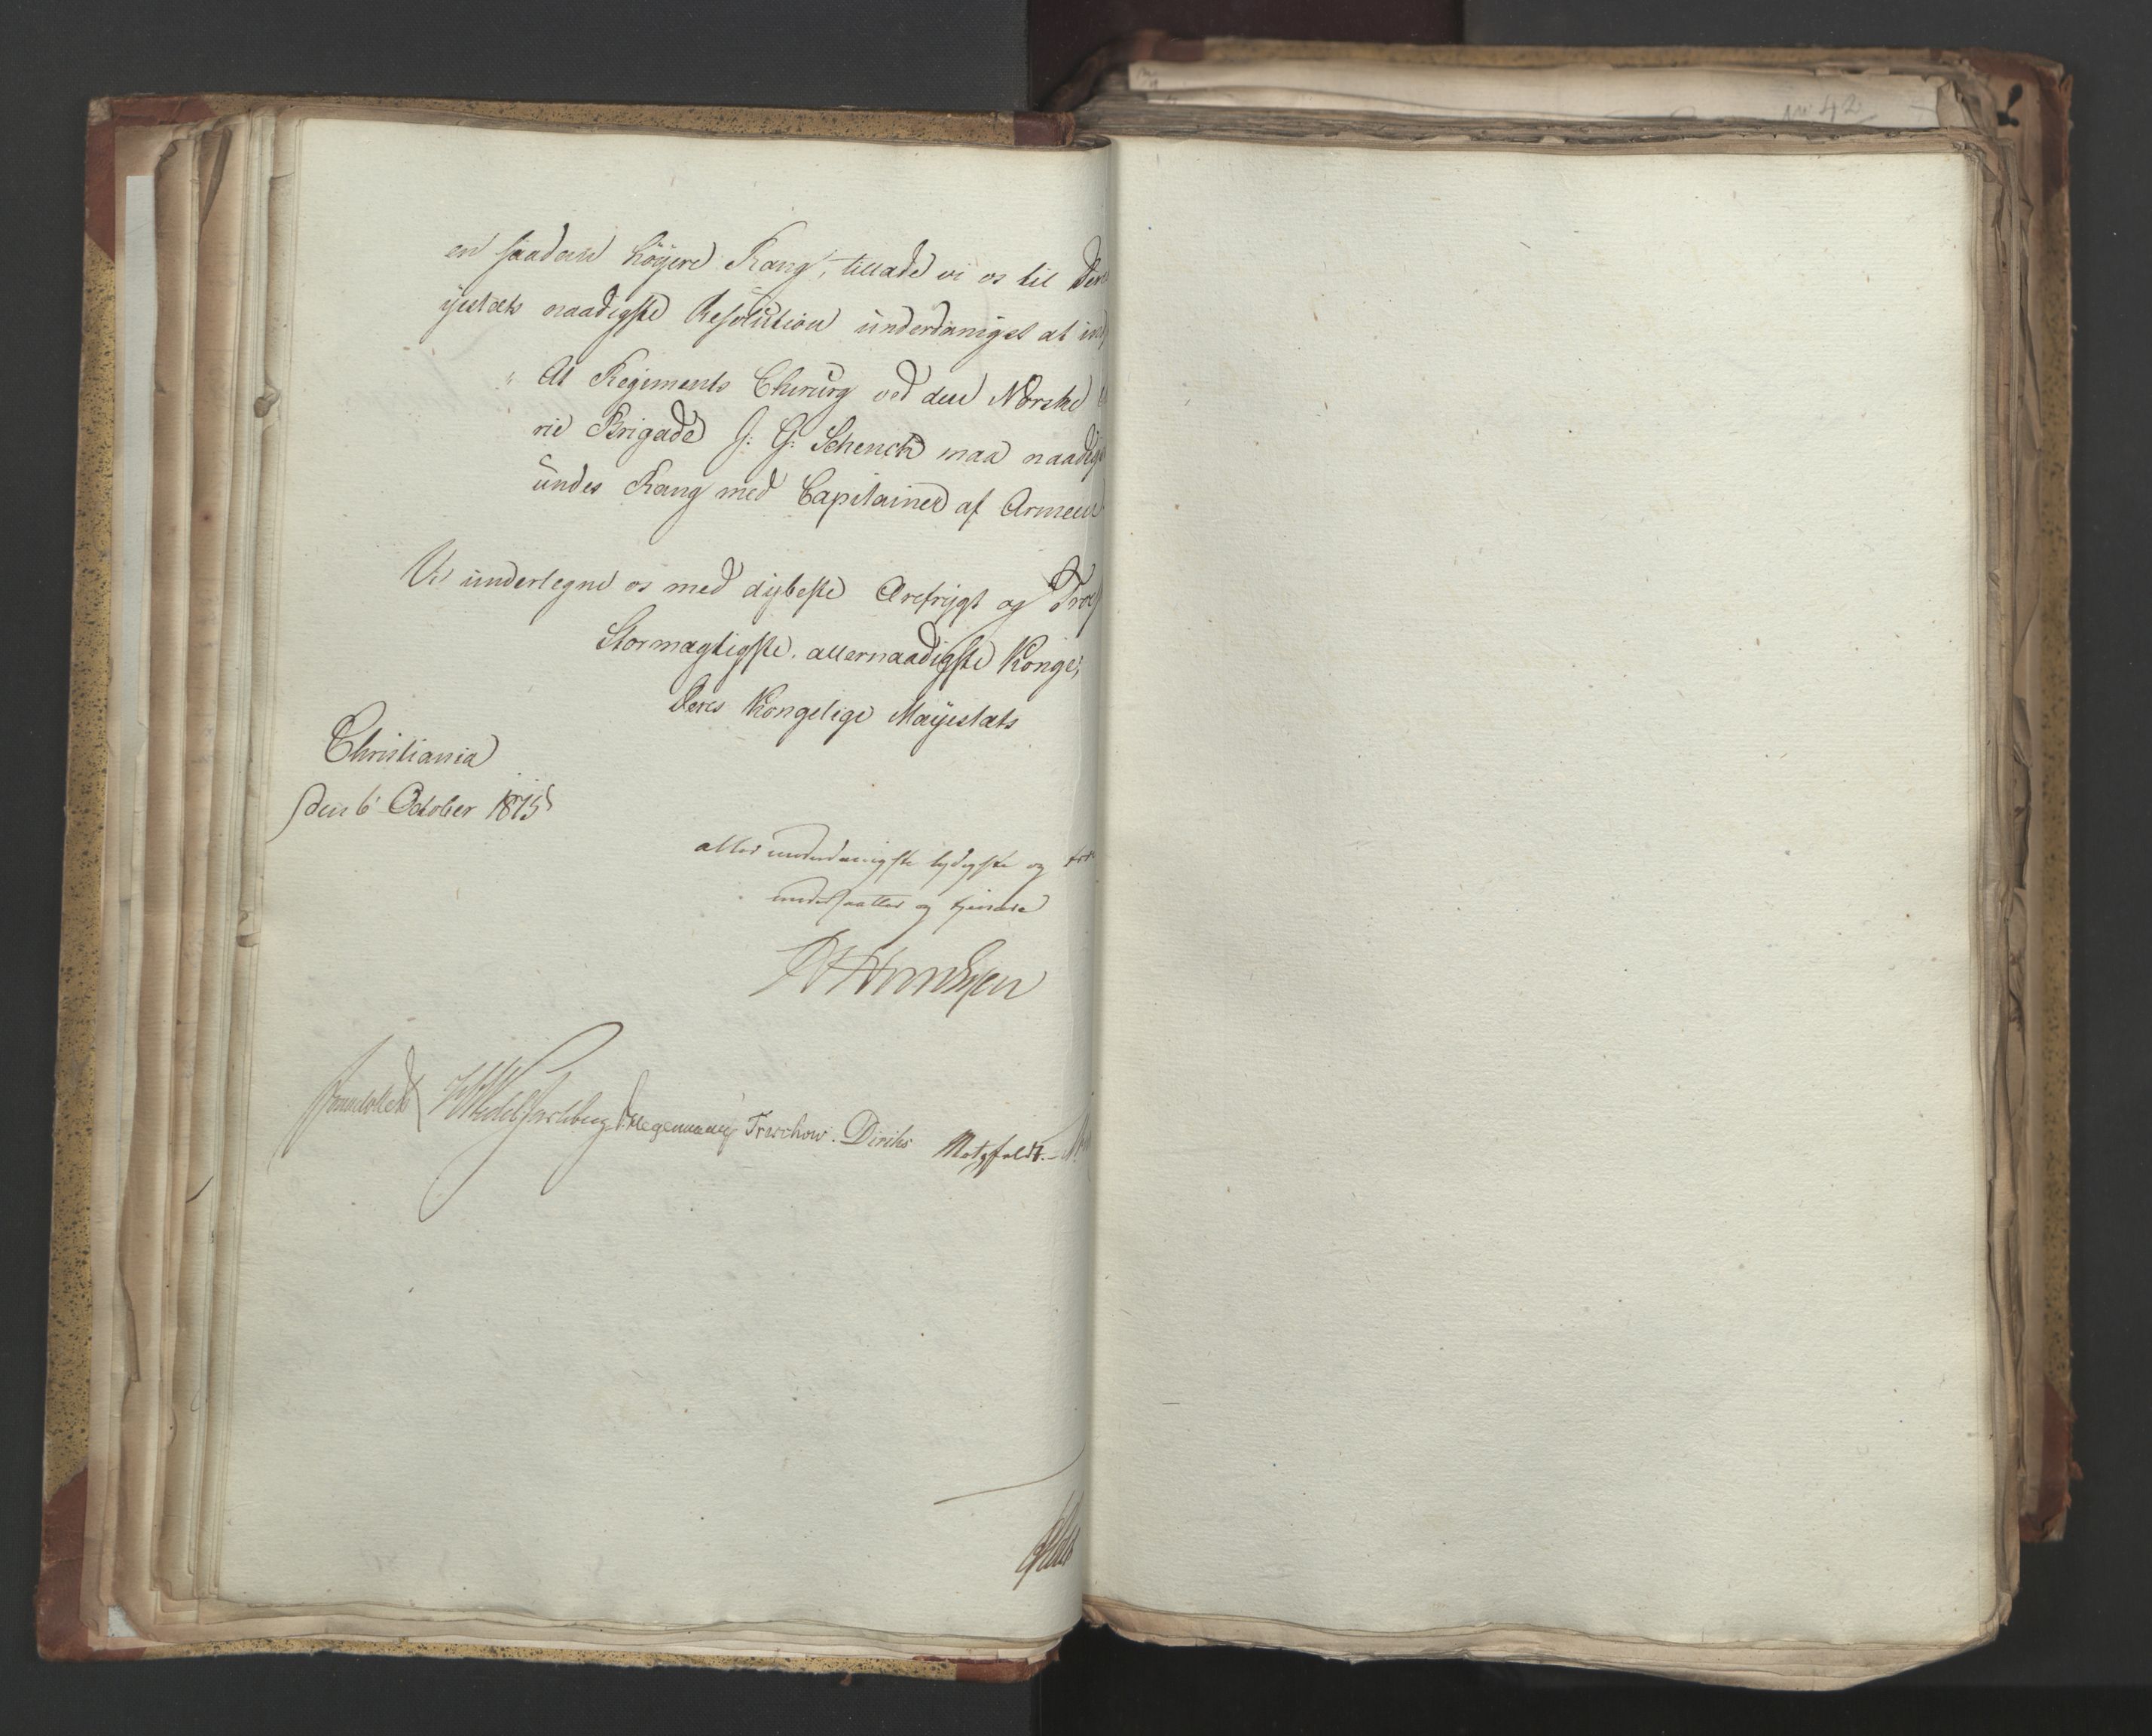 No 42
en saadan höÿere Rang, tillade vi os til Dere
ÿestæts naadigste Resolution underdanigst at ind
" At Regiments Chirurg ved den Norske
rie Brigade J: G: Schenck maa naadigs
undes Rang med Capitainer af Armeen
Vi undertegne os med dÿbeste Ærefrÿgt og Troe
Stormægtigste, allernaadigste Konge,
Deres Kongelige Maÿestæts
Christiania
den 6 October 1815
allerunderdanigste lydigste og tro
undersaatter og tjenere
Sommerhielm Wedel Jarlsberg D. Hegermann Treschow. Diriks Motzfeldt.